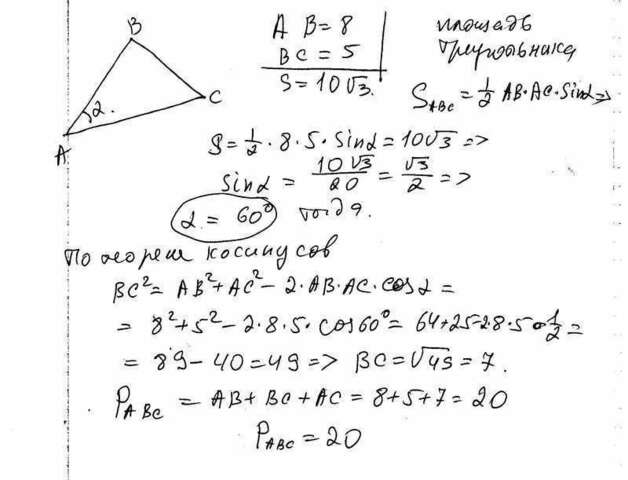 B
C
A
2.
A B = 8
BC = 5
S = 10√3.
площадь
треугольника
S_ABC = 1/2 AB·AC·Sinα =>
S = 1/2 · 8 · 5 · Sinα = 10√3 =>
Sinα = 10√3/20 = √3/2 =>
α = 60° тогда.
По теореме косинусов
BC² = AB² + AC² - 2·AB·AC·cosα =
= 8² + 5² - 2·8·5·cos60° = 64+25-2·8·5·1/2 =
= 89 - 40 = 49 => BC = √49 = 7.
P_ABC = AB + BC + AC = 8+5+7 = 20
P_ABC = 20